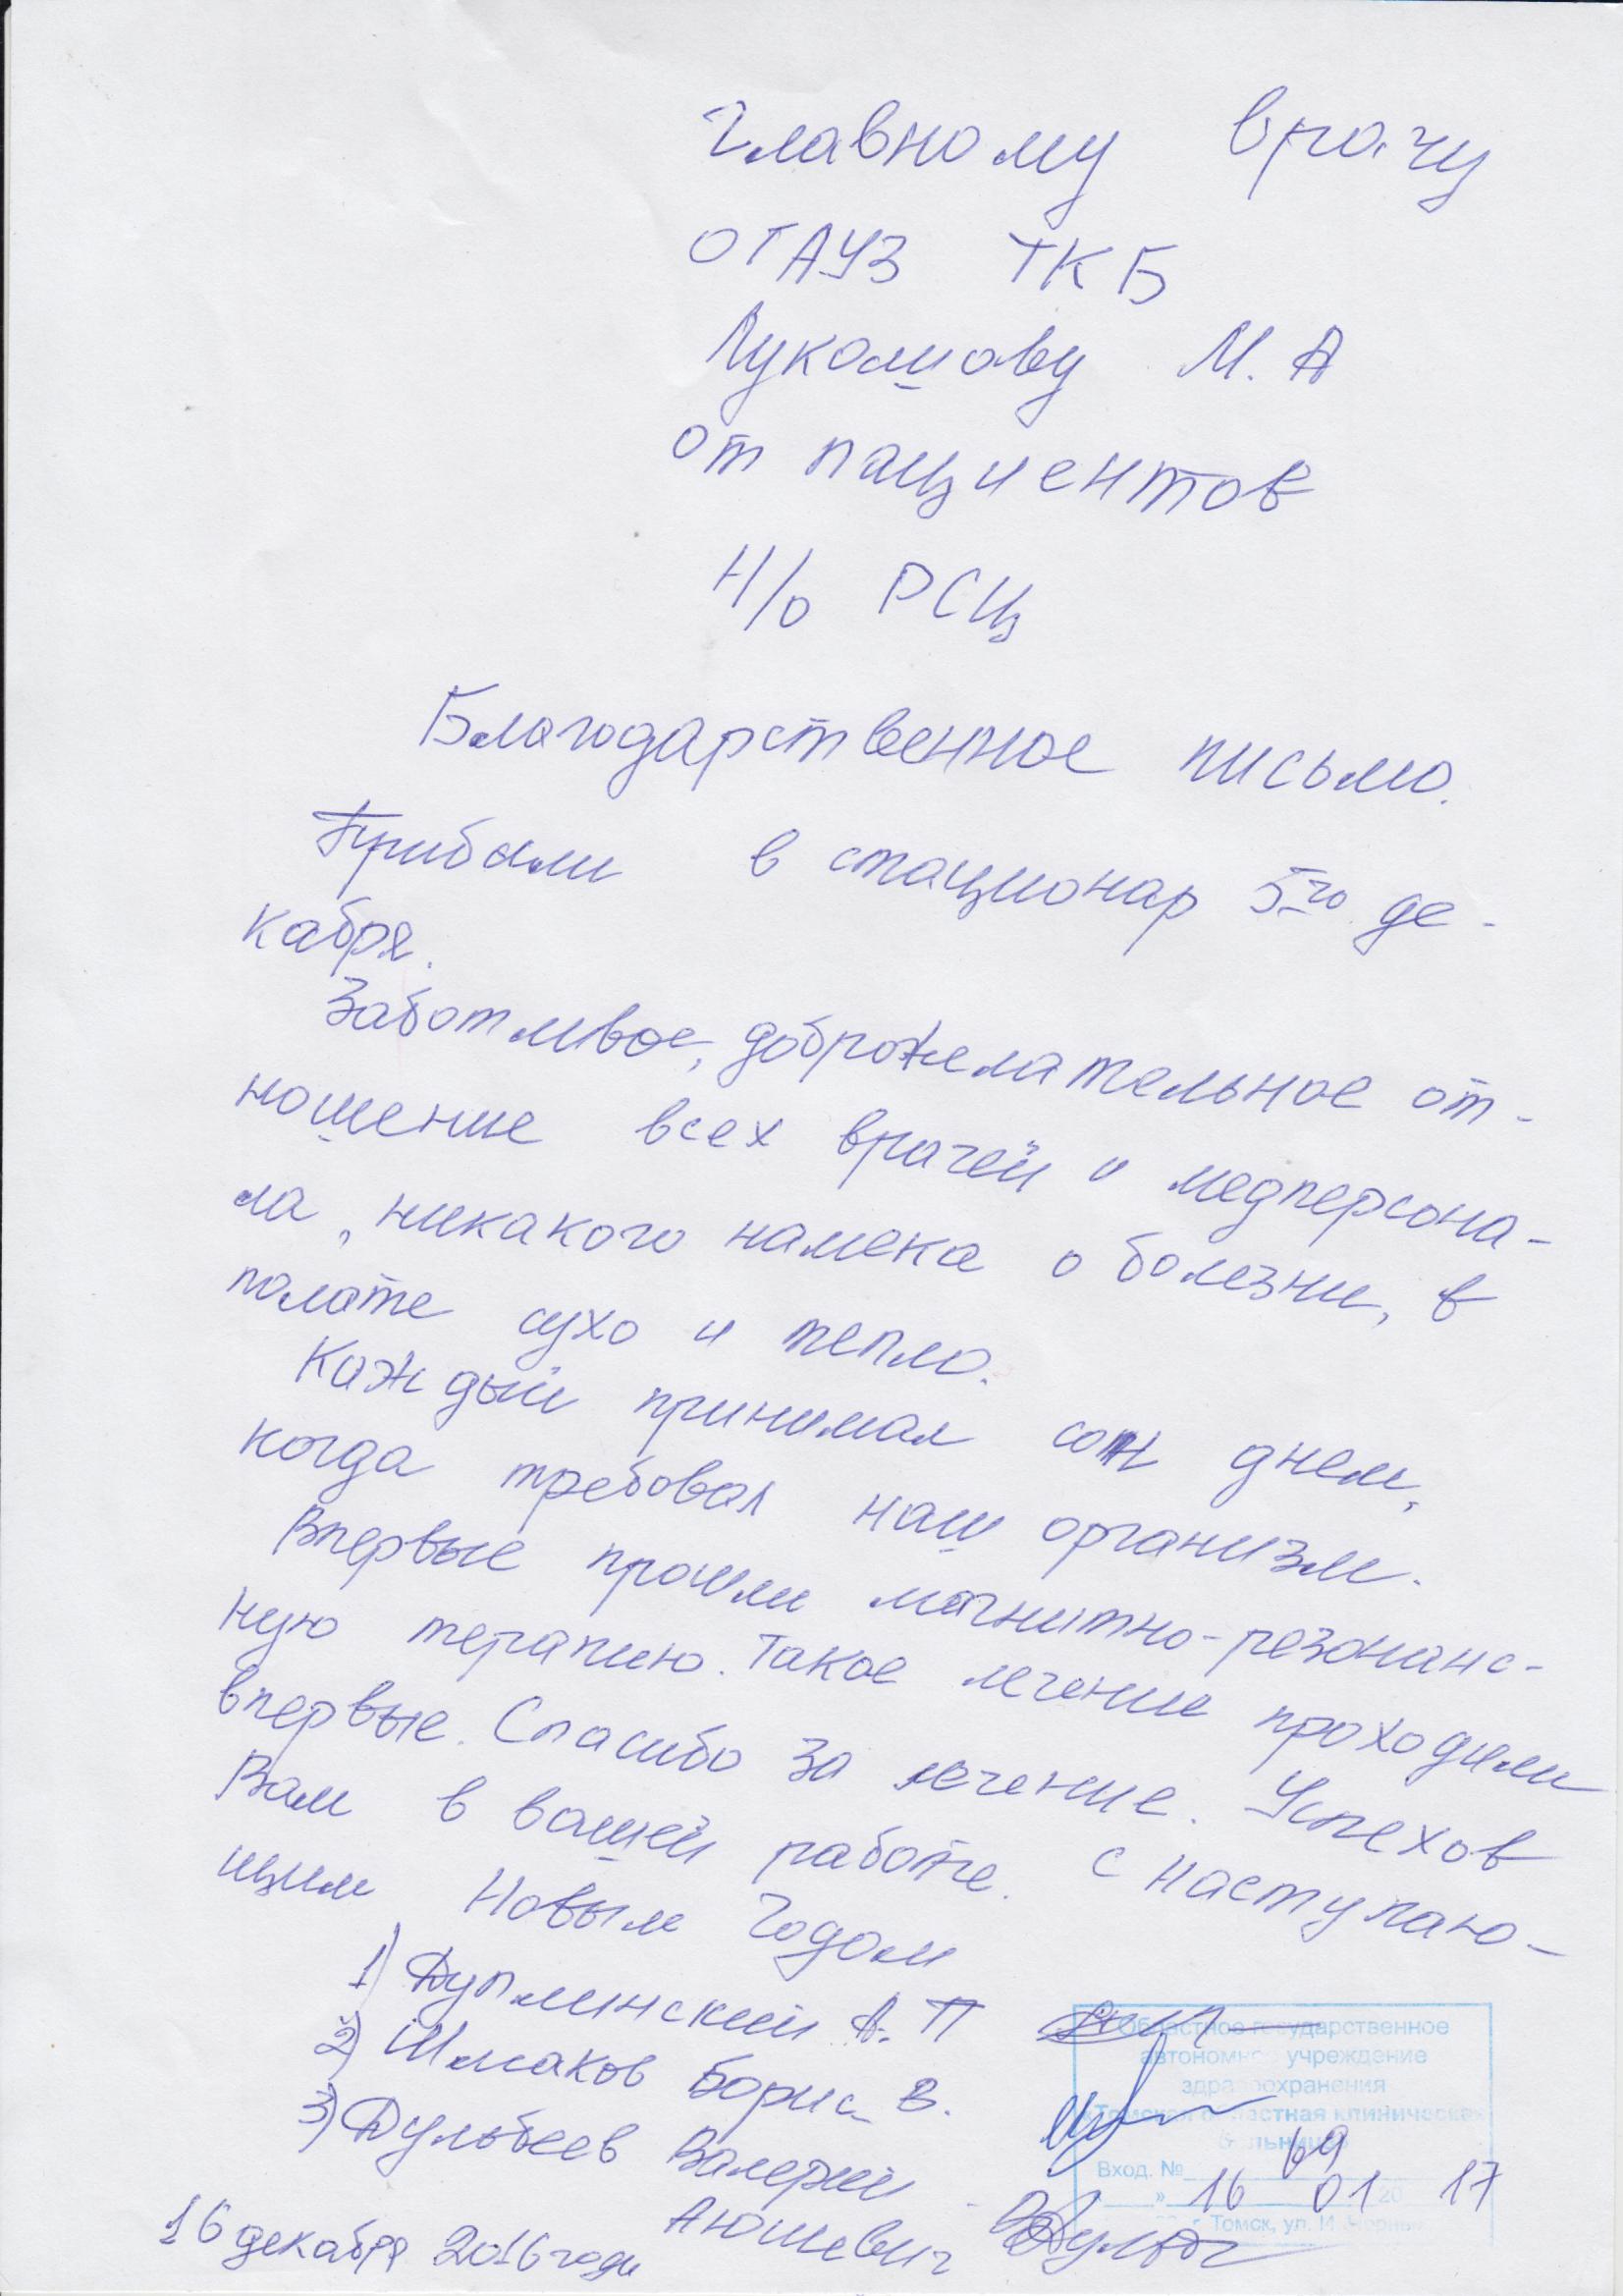 Главному врачу
ОГАУЗ ТКБ
Лукашову М. А
от пациентов
Н/о РСЦ
Благодарственное письмо.
Прибыли в стационар 5го де-
кабря.
Заботливое, доброжелательное от-
ношение всех врачей и медперсона-
ла, никакого намека о болезни, в
палате сухо и тепло.
Каждый принимал сон днем,
когда требовал наш организм.
Впервые прошли магнитно-резонанс-
ную терапию. Такое лечение проходили
впервые. Спасибо за лечение. Успехов
Вам в вашей работе. С наступаю-
щим Новым Годом
1) Дуплинский А. П
2) Шмаков Борис В.
3) Дульбеев Валерий
Аюшевич
16 декабря 2016 года
Областное государственное
автономное учреждение
здравоохранения
«Томская областная клиническая
больница»
Вход. № 69
» 16 01 2017
г. Томск, ул. И.